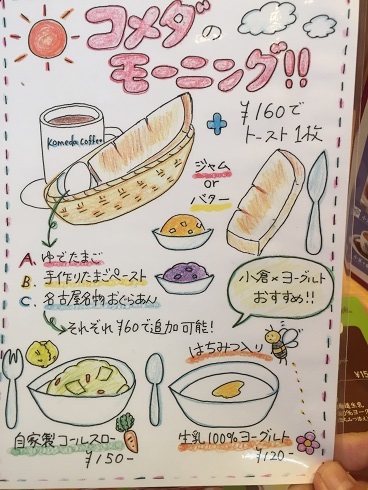 コメダの
モーニング!!
Komeda Coffee
+
¥160で
トースト1枚
ジャム
or
バター
A. ゆでたまご
B. 手作りたまごペースト
C. 名古屋名物おぐらあん
それぞれ¥60で追加可能!
小倉×ヨーグルト
おすすめ!!
はちみつ入り
自家製コールスロー
¥150-
生乳100%ヨーグルト
¥120-